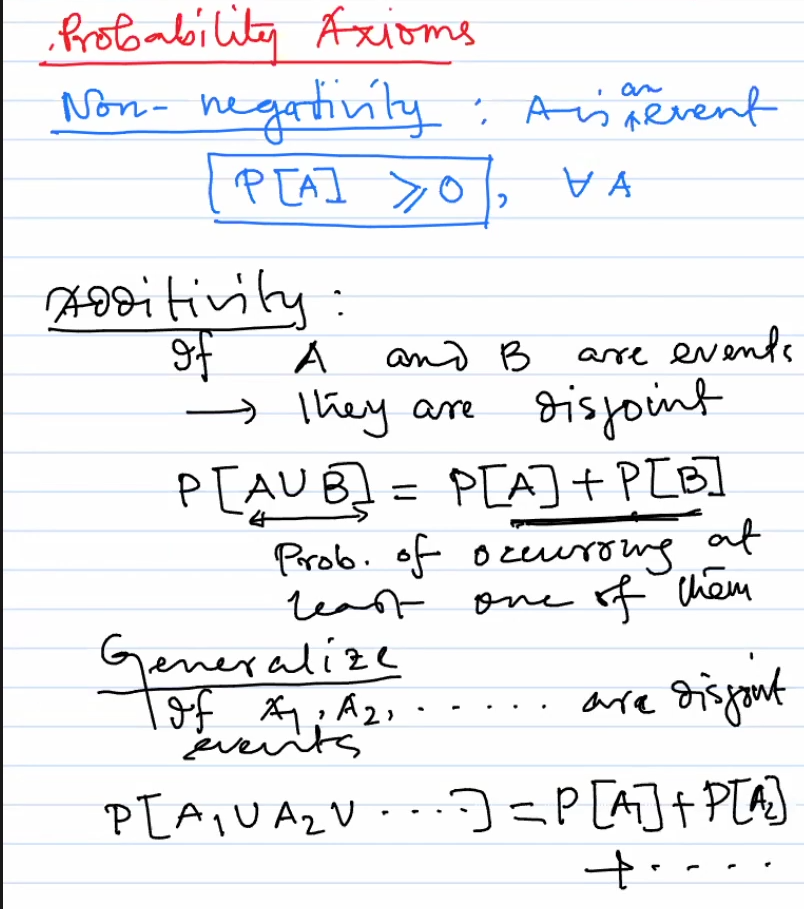 Probability Axioms
Non-negativity : A is an event
P[A] ⩾ 0, ∀ A
Additivity :
If A and B are events
→ They are disjoint
P[A∪B] = P[A] + P[B]
Prob. of occurring at
least one of them
Generalize
If A₁, A₂, ...... are disjoint
events
P[A₁∪A₂∪ ....] = P[A₁] + P[A₂]
+ ....